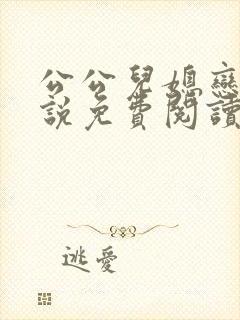 公公兒媳戀
說免費閱讀
逃愛